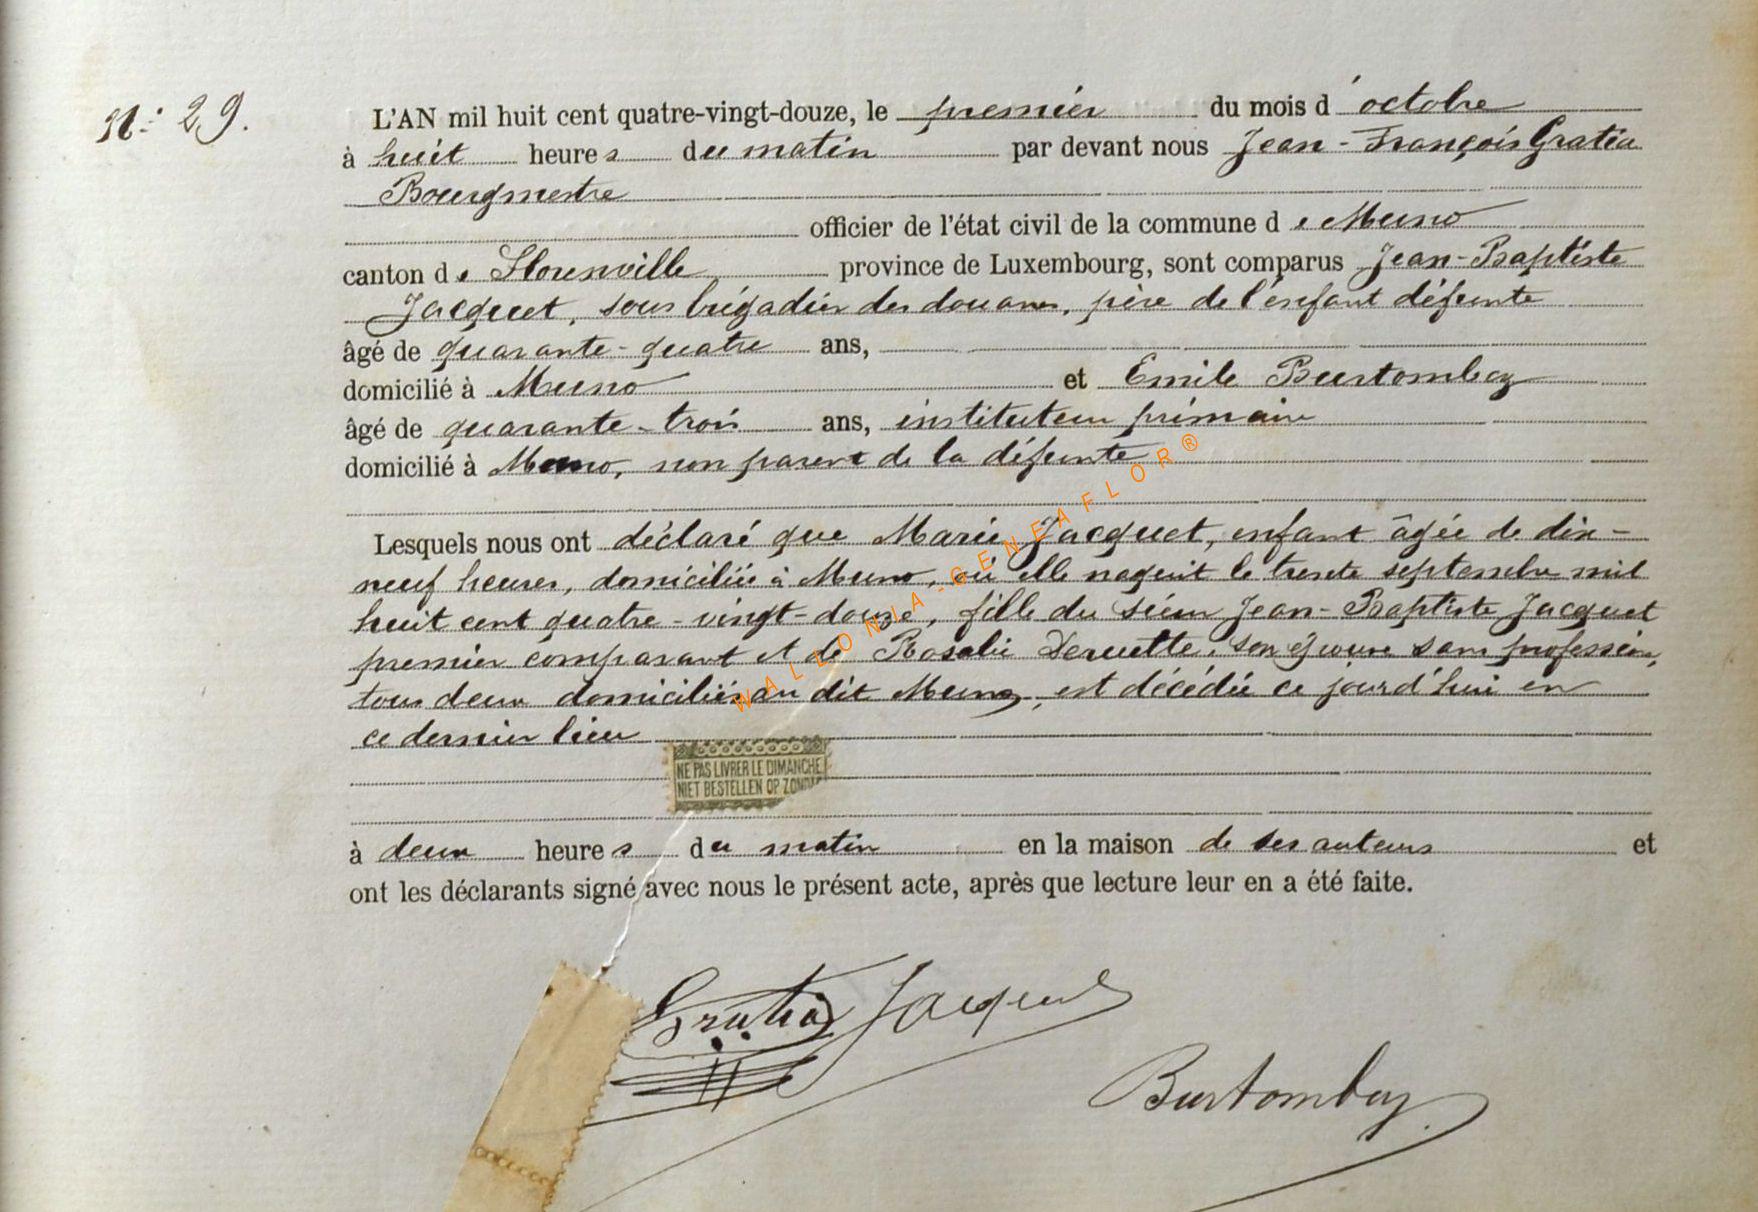 N° 29.
L'AN mil huit cent quatre-vingt-douze, le premier du mois d'octobre
à huit heures du matin par devant nous Jean-François Gratia
Bourgmestre
officier de l'état civil de la commune de Muno
canton de Florenville province de Luxembourg, sont comparus Jean-Baptiste
Jacquet, sous brigadier des douanes, père de l'enfant défunte
âgé de quarante-quatre ans,
domicilié à Muno et Emile Burtomboy
âgé de quarante-trois ans, instituteur primaire
domicilié à Muno, non parent de la défunte
Lesquels nous ont déclaré que Marie Jacquet, enfant âgée de dix-
neuf heures, domiciliée à Muno, où elle naquit le trente septembre mil
huit cent quatre-vingt-douze, fille du sieur Jean-Baptiste Jacquet
premier comparant et de Rosalie Deruette, son épouse sans profession,
tous deux domiciliés au dit Muno, est décédée ce jourd'hui en
ce dernier lieu
NE PAS LIVRER LE DIMANCHE
NIET BESTELLEN OP ZONDAG
à deux heures du matin en la maison de ses auteurs et
ont les déclarants signé avec nous le présent acte, après que lecture leur en a été faite.
Gratia Jacquet
Burtomboy
WALLONIA-GENEAFLOR®